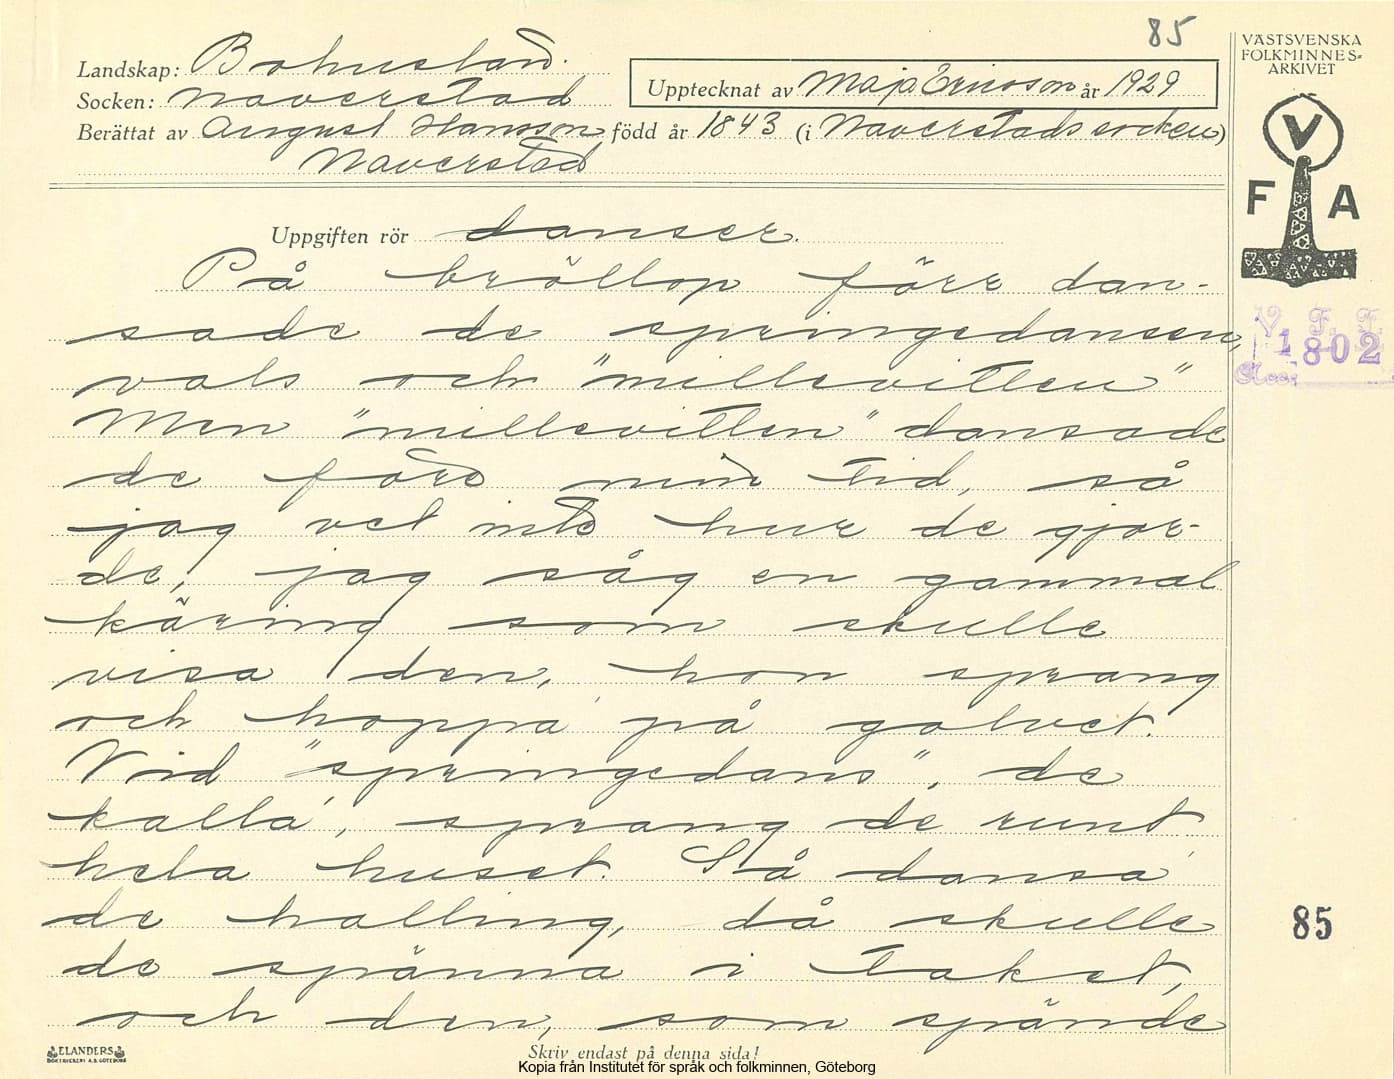 85
Landskap: Bohuslän.
Socken: Naverstad
Upptecknat av Maja Ericsson år 1929
Berättat av August Hansson född år 1843 (i Naverstads socken)
Naverstad
VÄSTSVENSKA
FOLKMINNES-
ARKIVET
V
F A
V. F. F.
1802
Uppgiften rör danser.
På bröllop förr dan-
sade de springedansen,
vals och "millevitten"
Men "millevitten" dansade
de före min tid, så
jag vet inte hur de gjor-
de, jag såg en gammal
käring som skulle
visa den, hon sprang
och hoppa' på golvet.
Vid "springedans", de
kalla', sprang de runt
hela huset. Så dansa'
de halling, då skulle
de spänna i taket,
och den, som spände
85
ELANDERS
BOKTRYCKERI A.B. GÖTEBORG
Skriv endast på denna sida!
Kopia från Institutet för språk och folkminnen, Göteborg